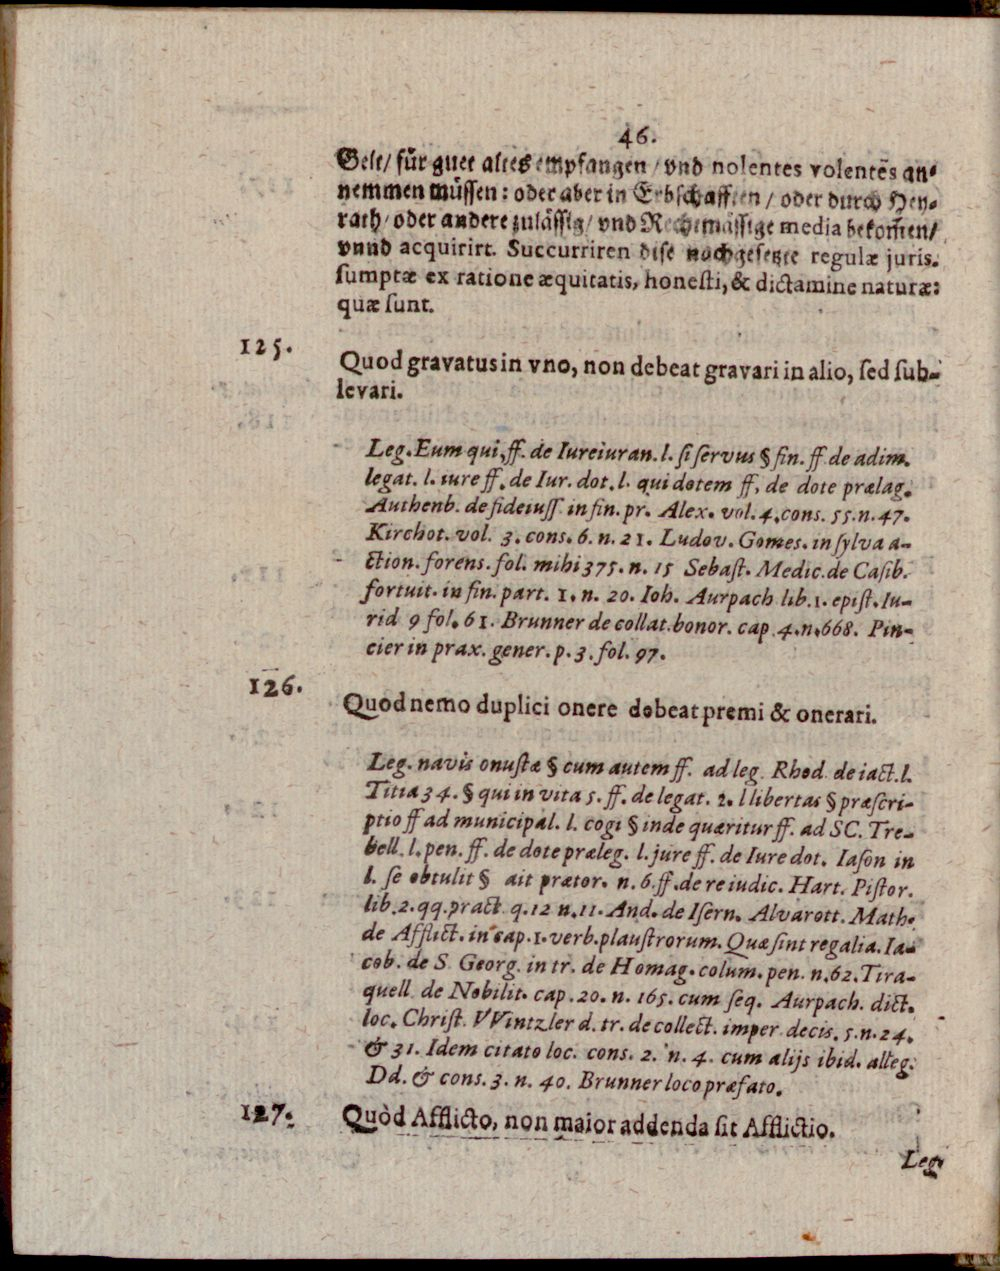 46.
Gelt/ für guet altes empfangen / vnd nolentes volentēs an-
nemmen müssen: oder aber in Erbschafften / oder durch Hey-
rath/ oder andere zulässig/ vnd Rechtmässige media bekom̃en/
vnnd acquirirt. Succurriren dise nachgesetzte regulæ juris.
sumptæ ex ratione æquitatis, honesti, & dictamine naturæ:
quæ sunt.
125.
Quod gravatus in vno, non debeat gravari in alio, sed sub-
levari.
Leg. Eum qui, ff. de Iureiuran. l. si servus § fin. ff de adim.
legat. l. iure ff. de Iur. dot. l. qui dotem ff, de dote prælag.
Authenb. de fideiuss in fin. pr. Alex. vol. 4. cons. 55. n. 47.
Kirchot. vol. 3. cons. 6. n. 21. Ludov. Gomes. in sylva a-
ction. forens. fol. mihi 375. n. 15 Sebast. Medic. de Casib.
fortuit. in fin. part. 1. n. 20. Ioh. Aurpach lib. 1. epist. Iu-
rid 9 fol. 61. Brunner de collat. bonor. cap. 4. n. 668. Pin-
cier in prax. gener. p. 3. fol. 97.
126.
Quod nemo duplici onere debeat premi & onerari.
Leg. navis onustæ § cum autem ff. ad leg. Rhod. de iact. l.
Titia 34. § qui in vita 5. ff. de legat. 2. l libertas § præscri-
ptio ff ad municipal. l. cogi § inde quæritur ff. ad SC. Tre-
bell. l. pen. ff. de dote præleg. l. jure ff. de Iure dot. Iason in
l. se obtulit § ait prætor. n. 6. ff. de re iudic. Hart. Pistor.
lib. 2. qq. pract q. 12 n. 11. And. de Isern. Alvarott. Math.
de Afflict. in cap. 1. verb. plaustrorum. Quæ sint regalia. Ia-
cob. de S. Georg. in tr. de Homag. colum. pen. n. 62. Tira-
quell de Nobilit. cap. 20. n. 165. cum seq. Aurpach. dict.
loc. Christ. VVintzler d. tr. de collect. imper. decis. 5. n. 24.
& 31. Idem citato loc. cons. 2. n. 4. cum alijs ibid. alleg.
Dd. & cons. 3. n. 40. Brunner loco præfato.
127.
Quòd Afflicto, non maior addenda sit Afflictio.
Leg.